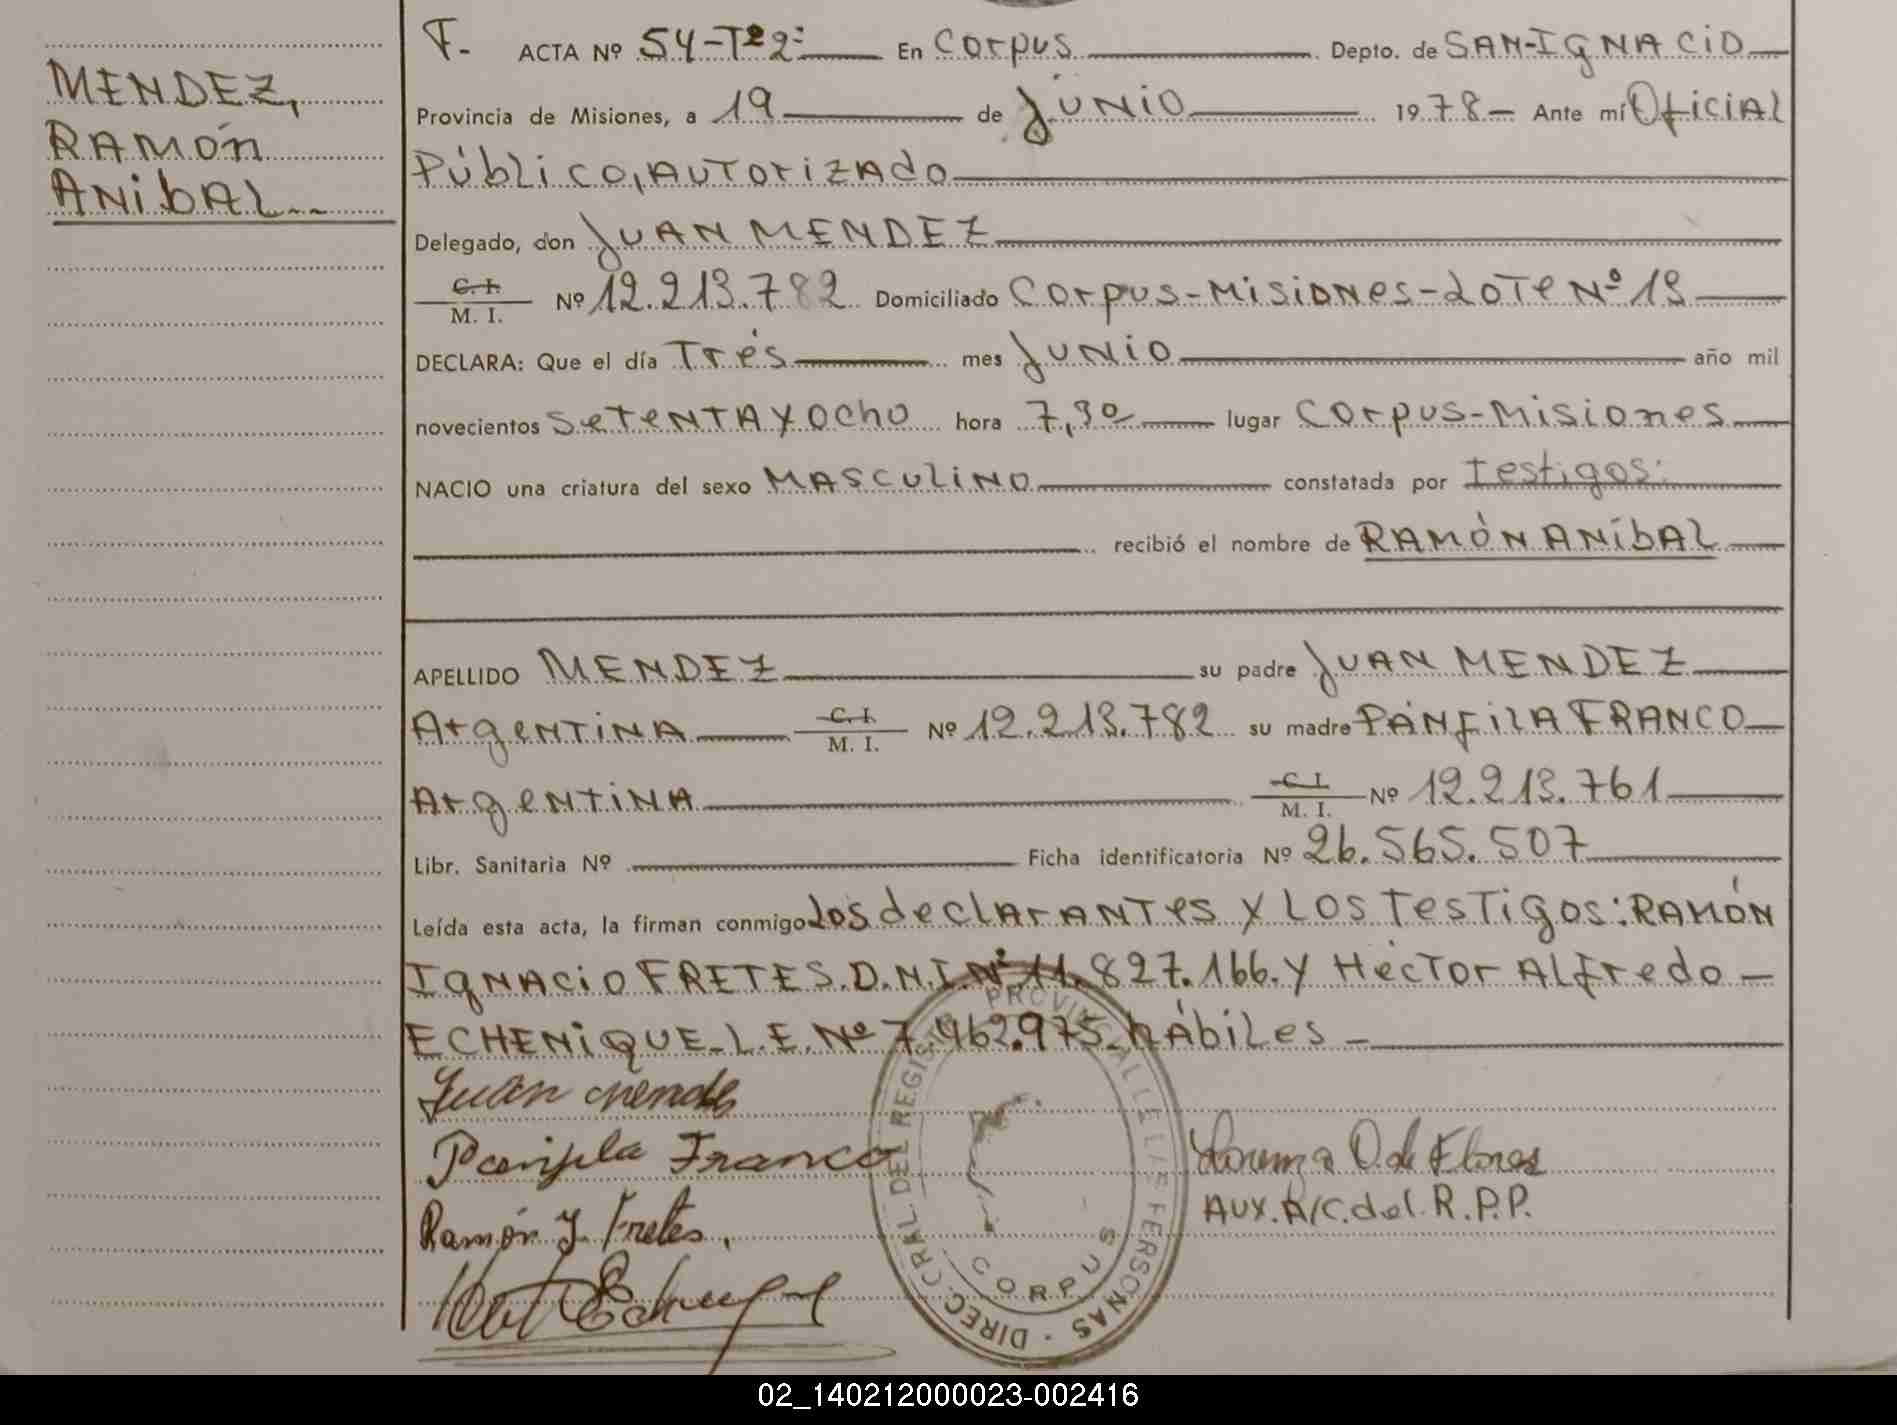 MENDEZ,
RAMÓN
ANIBAL
F. ACTA Nº 54-Tº2º En Corpus Depto. de SAN-IGNACIO
Provincia de Misiones, a 19 de JUNIO 1978 Ante mí OficiAl
Público, AUTORIZADO
Delegado, don JUAN MENDEZ
C. I.
M. I. Nº 12.213.782 Domiciliado Corpus-Misiones-Lote Nº 19
DECLARA: Que el día Trés mes JUNIO año mil
novecientos SeTENTA Y OCHO hora 7,30 lugar Corpus-Misiones
NACIO una criatura del sexo MASCULINO constatada por Testigos:
recibió el nombre de RAMÓN ANÍBAL
APELLIDO MENDEZ su padre JUAN MENDEZ
ArgeNTiNA C. I.
M. I. Nº 12.213.782 su madre PÁNFILA FRANCO
ArgeNTiNA C. I.
M. I. Nº 12.213.761
Libr. Sanitaria Nº Ficha identificatoria Nº 26.565.507
Leída esta acta, la firman conmigo Los declarANTes Y LOS TesTigos: RAMÓN
IGNACIO FRETES. D.N.I. Nº 11.827.166. Y HécTor ALfredo
ECHENIQUE-L.E. Nº 7.462.975-hÁbiLes
Juan Mendez
Panfila Franco
Ramón Y. Fretes.
DIREC. GRAL DEL REGISTRO PROVINCIAL DE LAS PERSONAS
CORPUS
Lorenza O. de Flores
AUX. A/C. del R.P.P.
02_140212000023-002416